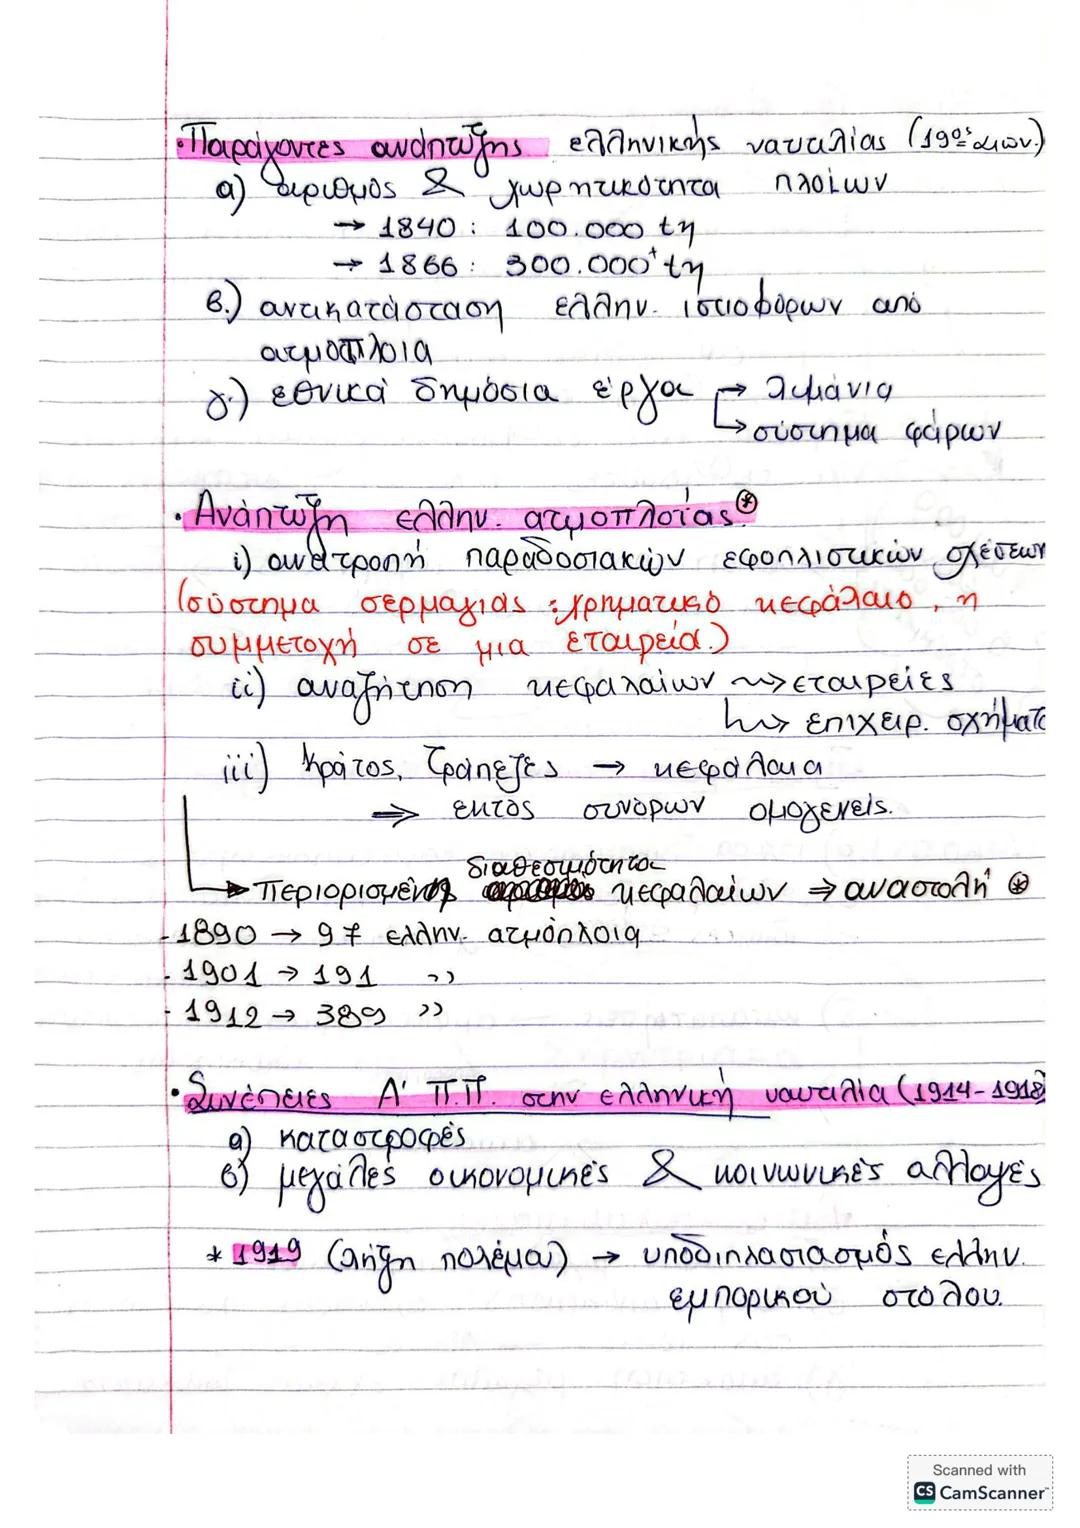 •Παράγοντες ανάπτυξης ελληνικής ναυτιλίας (19ος αιών.)
α) αριθμός & χωρητικότητα πλοίων
→ 1840 : 100.000 τη
→ 1866 : 300.000⁺ τη
β.) αντικατάσταση ελλην. ιστιοφόρων από
ατμόπλοια
γ.) εθνικά δημόσια έργα → λιμάνια
↳ σύστημα φάρων
• Ανάπτυξη ελλην. ατμοπλοΐας ⊛
i) ανατροπή παραδοσιακών εφοπλιστικών σχέσεων
(σύστημα σερμαγιάς : χρηματικό κεφάλαιο, η
συμμετοχή σε μια εταιρεία.)
ii) αναζήτηση κεφαλαίων ⇝ εταιρείες
↳ επιχειρ. σχήματα
iii) Κράτος, Τράπεζες → κεφάλαια
⇒ εκτός συνόρων ομογενείς.
διαθεσιμότητα
→ περιορισμένη κεφαλαίων ⇒ αναστολή ⊛
- 1890 → 97 ελλην. ατμόπλοια
- 1901 → 191 ››
- 1912 → 389 ››
• Συνέπειες Α' Π.Π. στην ελληνική ναυτιλία (1914-1918)
α) καταστροφές
β) μεγάλες οικονομικές & κοινωνικές αλλαγές
* 1919 (λήξη πολέμου) → υποδιπλασιασμός ελλην.
εμπορικού στόλου.
Scanned with
CS CamScanner